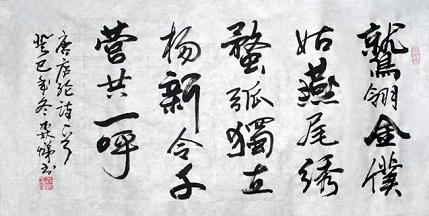 鷲翎金僕
姑燕尾绣
蝥弧獨立
杨新令千
营共一呼
唐卢纶诗一首
癸巳年冬书